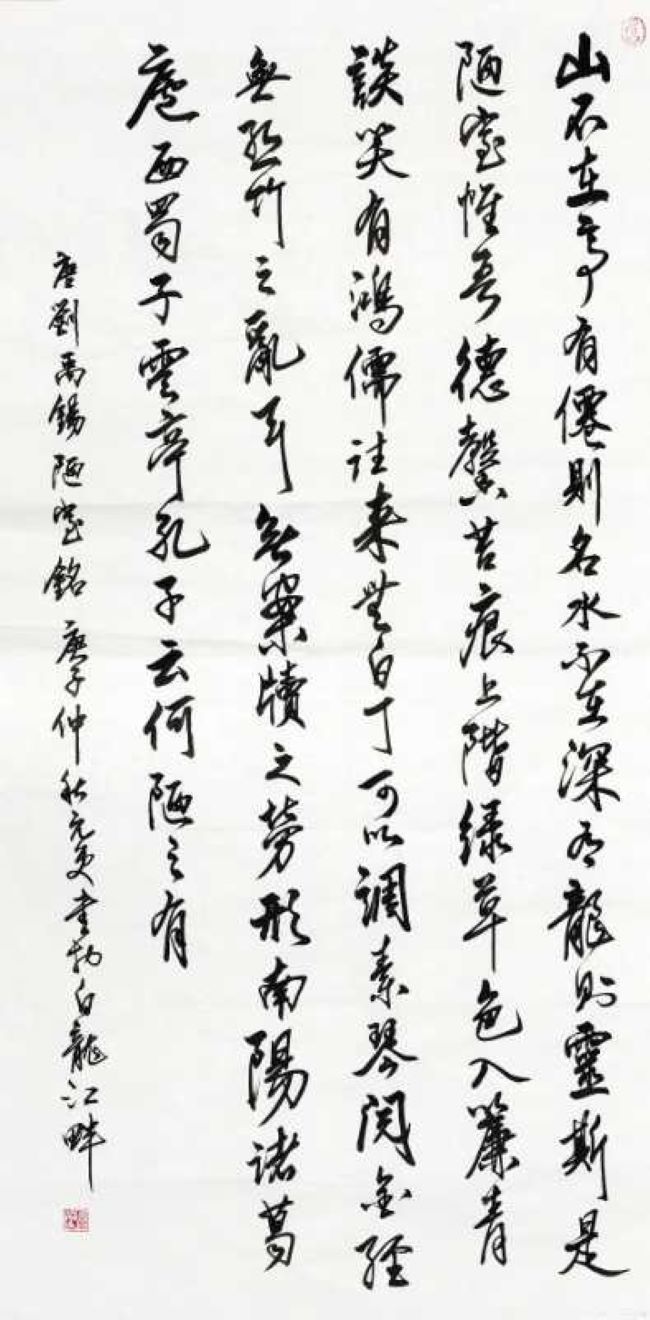 山不在高有僊則名水不在深有龍則靈斯是
陋室惟吾德馨苔痕上階緑草色入簾青
談笑有鴻儒往来無白丁可以調素琴閱金經
無絲竹之亂耳無案牘之勞形南陽諸葛
廬西蜀子雲亭孔子云何陋之有
唐劉禹錫陋室銘庚子仲秋元英書於白龍江畔